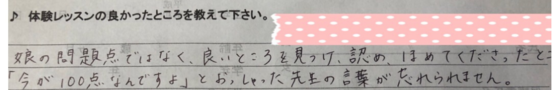 ♪ 体験レッスンの良かったところを教えて下さい。
娘の問題点ではなく、良いところを見つけ、認め、ほめてくださったと
「今が100点なんですよ」とおっしゃった先生の言葉が忘れられません。